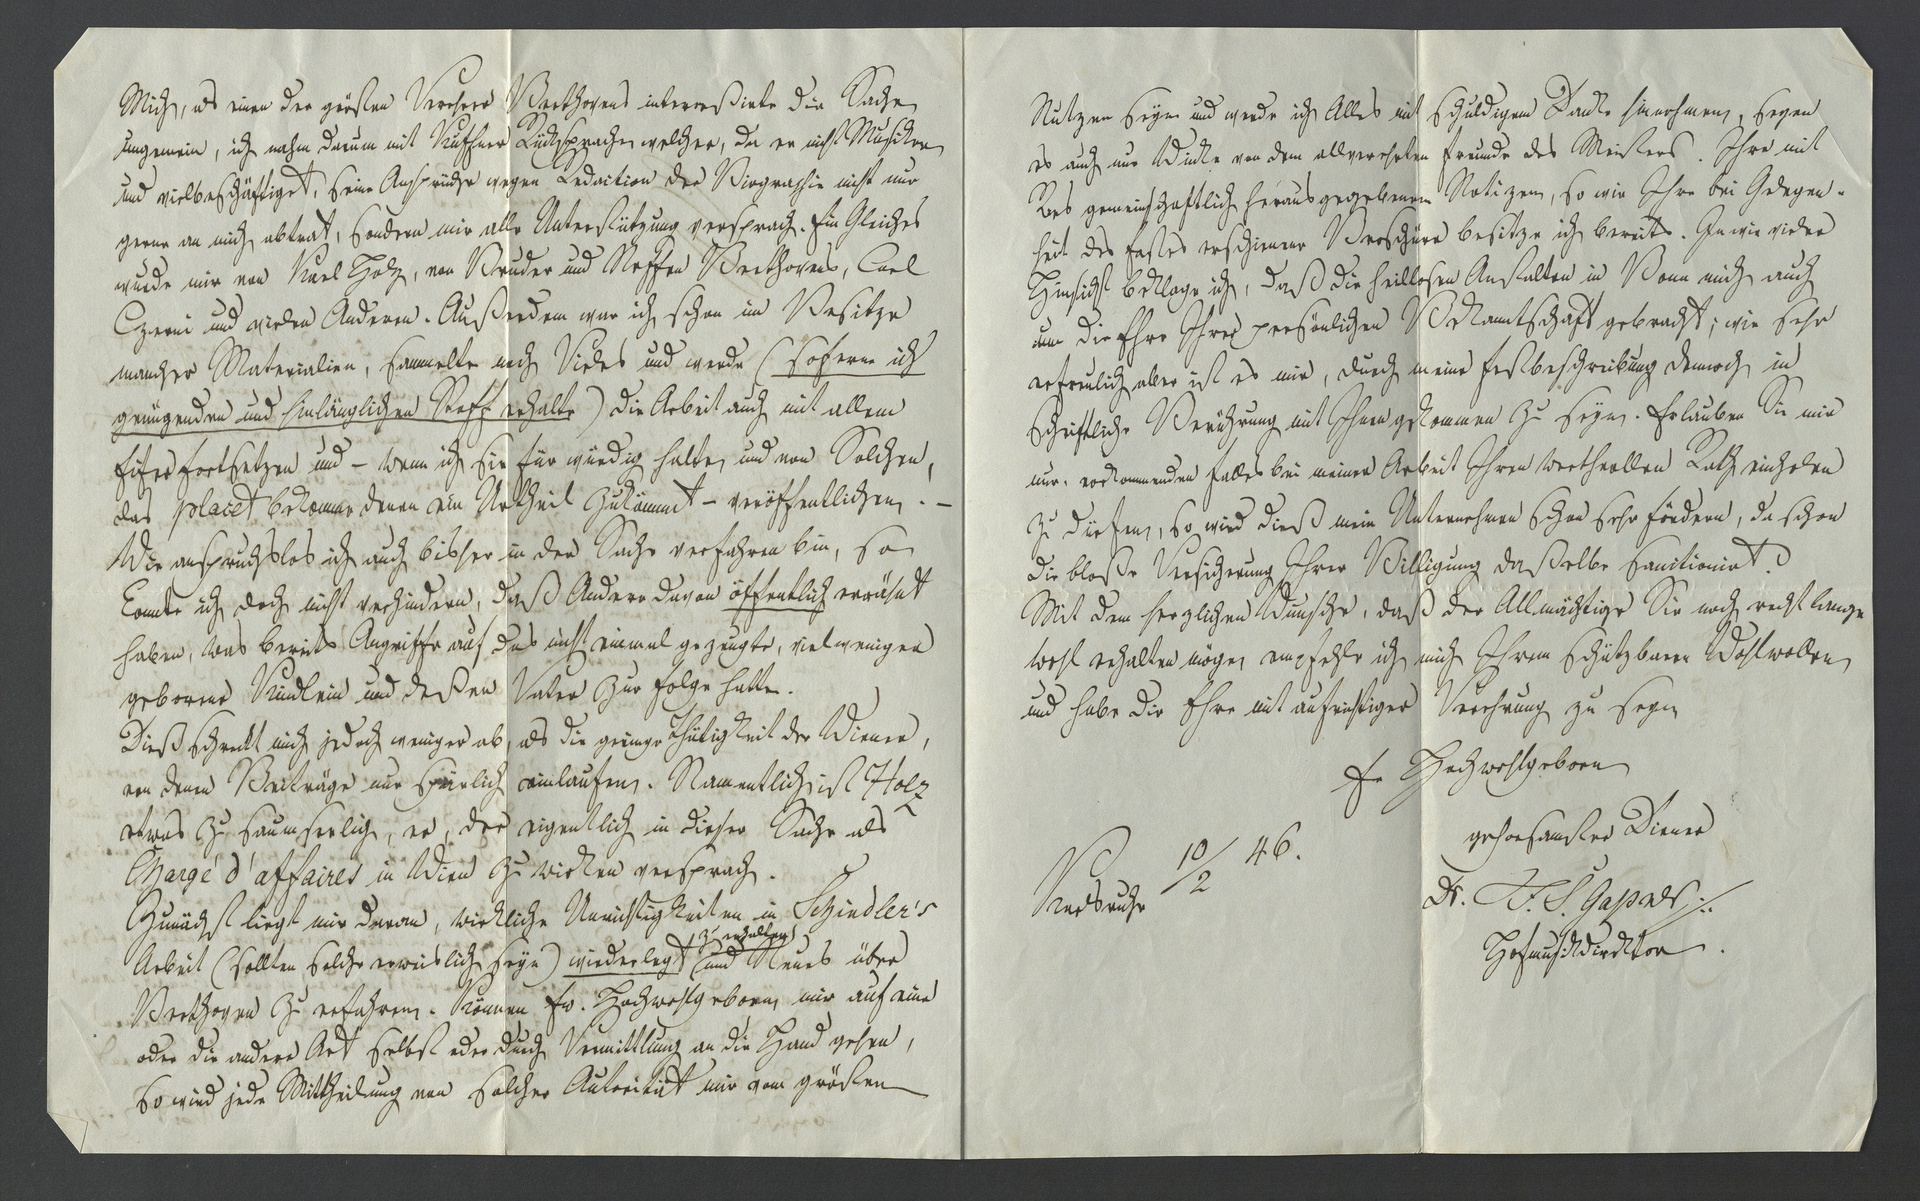 Mich, als einen der größten Verehrer Beethovens interreßirte die Sache
ungemein, ich nahm darum mit Kuffner Rücksprache, welcher, da er nicht Musiker
und vielbeschäftiget, seine Ansprüche wegen Redaction der Biographie nicht nur
gerne an mich abtrat, sondern mir alle Unterstützung versprach. Ein Gleiches
wurde mir von Karl Holz, von Bruder und Neffen Beethovens, Carl
Czerni und vielen Anderen. Außerdem war ich schon im Besitze
mancher Materialien, sammelte noch Vieles und werde (soferne ich
genügenden und hinlänglichen Stoff erhalte) die Arbeit auch mit allem
Eifer fortsetzen und – wenn ich sie für würdig halte, und von Solchen,
das placet bekomme denen ein Urtheil zukömmt – veröffentlichen. –
Wie anspruchslos ich auch bisher in der Sache verfahren bin, so
konnte ich doch nicht verhindern, daß Andere davon öffentlich erwähnt
haben, was bereits Angriffe auf das nicht einmal gezeugte, viel weniger
geborne Kindlein und deßen Vater zur Folge hatte.
Dieß schreckt mich jedoch weniger ab, als die geringe Thätigkeit der Wiener,
von denen Beiträge nur spärlich einlaufen. Namentlich ist Holz
etwas zu saumselig, er, der eigentlich in dieser Sache als
Chargé d'affaires in Wien zu wirken versprach.
Zunächst liegt mir daran, wirkliche Unrichtigkeiten in Schindler's
Arbeit (sollten solche erweislich seyn) wiederlegt zu erhalten und Neues über
Beethoven zu erfahren. Können Ew. Hochwohlgeboren mir auf eine
oder die andere Art selbst oder durch Vermittlung an die Hand gehen,
so wird jede Mittheilung von solcher Autorität mir vom größten
Nutzen seyn und werde ich Alles mit schuldigem Danke hinnehmen, seyen
es auch nur Winke von dem allverehrten Freunde des Meisters. Ihre mit
Ries gemeinschaftlich herausgegebenen Notizen, so wie Ihre bei Gelegen-
heit des Festes erschienene Broschüre besitze ich bereits. In wie vieler
Hinsicht beklage ich, daß die heillosen Anstalten in Bonn mich auch
um die Ehre Ihrer persönlichen Bekanntschaft gebracht; wie sehr
erfreulich aber ist es mir, durch meine Festbeschreibung dennoch in
schriftliche Berührung mit Ihnen gekommen zu seyn. Erlauben Sie mir
nur, vorkommenden Falles bei meiner Arbeit Ihren werthvollen Rath einholen
zu dürfen, so wird dieß mein Unternehmen schon sehr fördern, da schon
die bloße Versicherung Ihrer Billigung daßelbe sanctionirt.
Mit dem herzlichen Wunsche, daß der Allmächtige Sie noch recht lange
wohl erhalten möge, empfehle ich mich Ihrem schätzbaren Wohlwollen,
und habe die Ehre mit aufrichtiger Verehrung zu seyn
Ew Hochwohlgeboren
gehorsamster Diener
Carlsruhe 10/2 46.
Dr. F. S. Gaßner
Hofmusikdirektor.